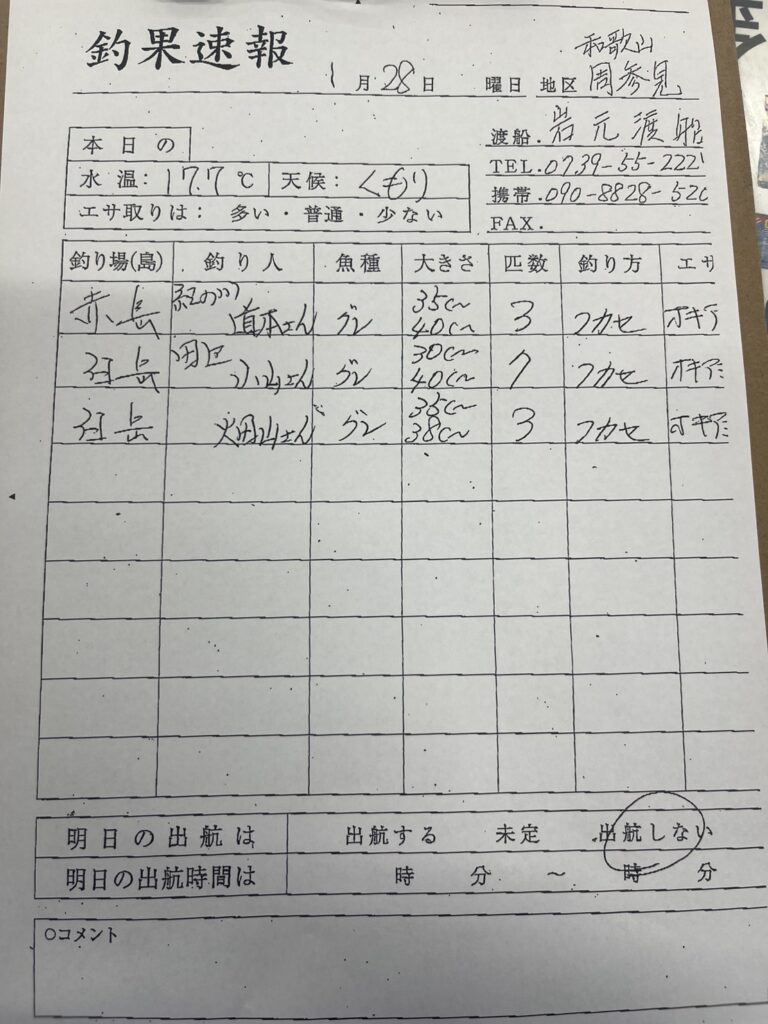 釣果速報
1月28日 曜日 地区 和歌山 周参見
渡船. 岩元渡船
本日の
水温: 17.7℃ 天候: くもり
TEL. 0739-55-222
携帯. 090-8828-520
エサ取りは: 多い・普通・少ない
FAX.
釣り場(島) 釣り人 魚種 大きさ 匹数 釣り方 エサ
赤島 紀の川 道本さん グレ 35㎝ 40㎝ 3 フカセ オキア
島 小山さん グレ 30㎝ 40㎝ 7 フカセ オキアミ
島 さん グレ 35㎝ 38㎝ 3 フカセ オキアミ
明日の出航は 出航する 未定 出航しない
明日の出航時間は 時 分 ～ 時 分
○コメント